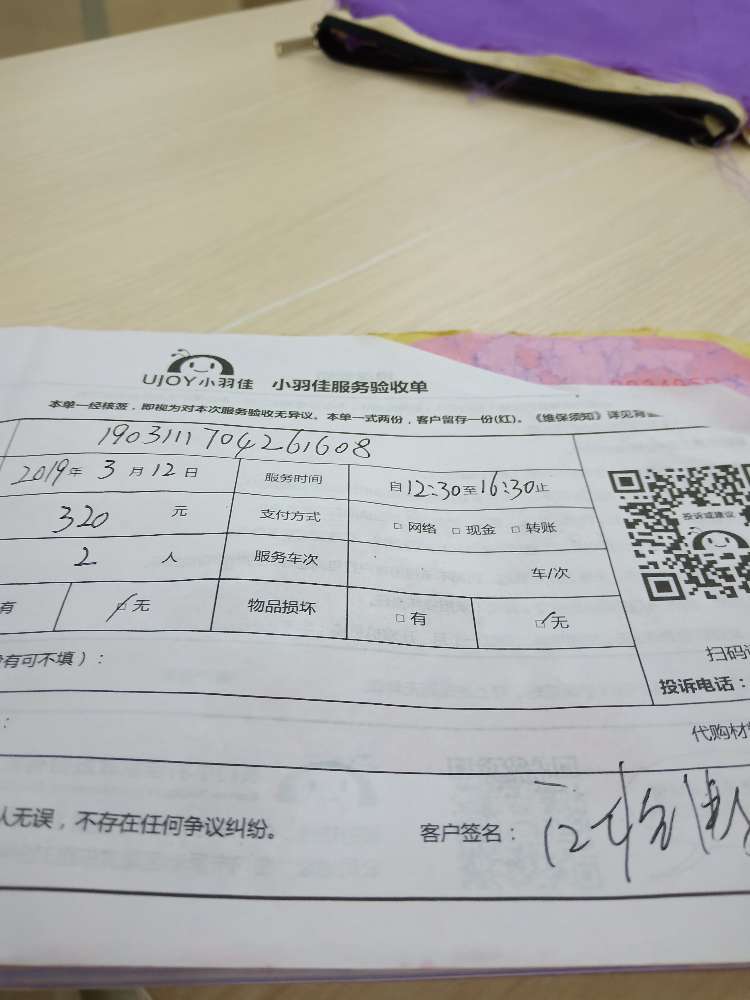 UJOY小羽佳 小羽佳服务验收单
本单一经核签，即视为对本次服务验收无异议。本单一式两份，客户留存一份(红)。《维保须知》详见背
1903111704261608
2019年 3月12日 服务时间 自12:30至16:30止
320 元 支付方式 □ 网络 □ 现金 □ 转账
投诉或建议
2 人 服务车次 车/次
有 □无 物品损坏 □有 □无
扫码
没有可不填）：
投诉电话：
：
代购材
人无误，不存在任何争议纠纷。 客户签名：